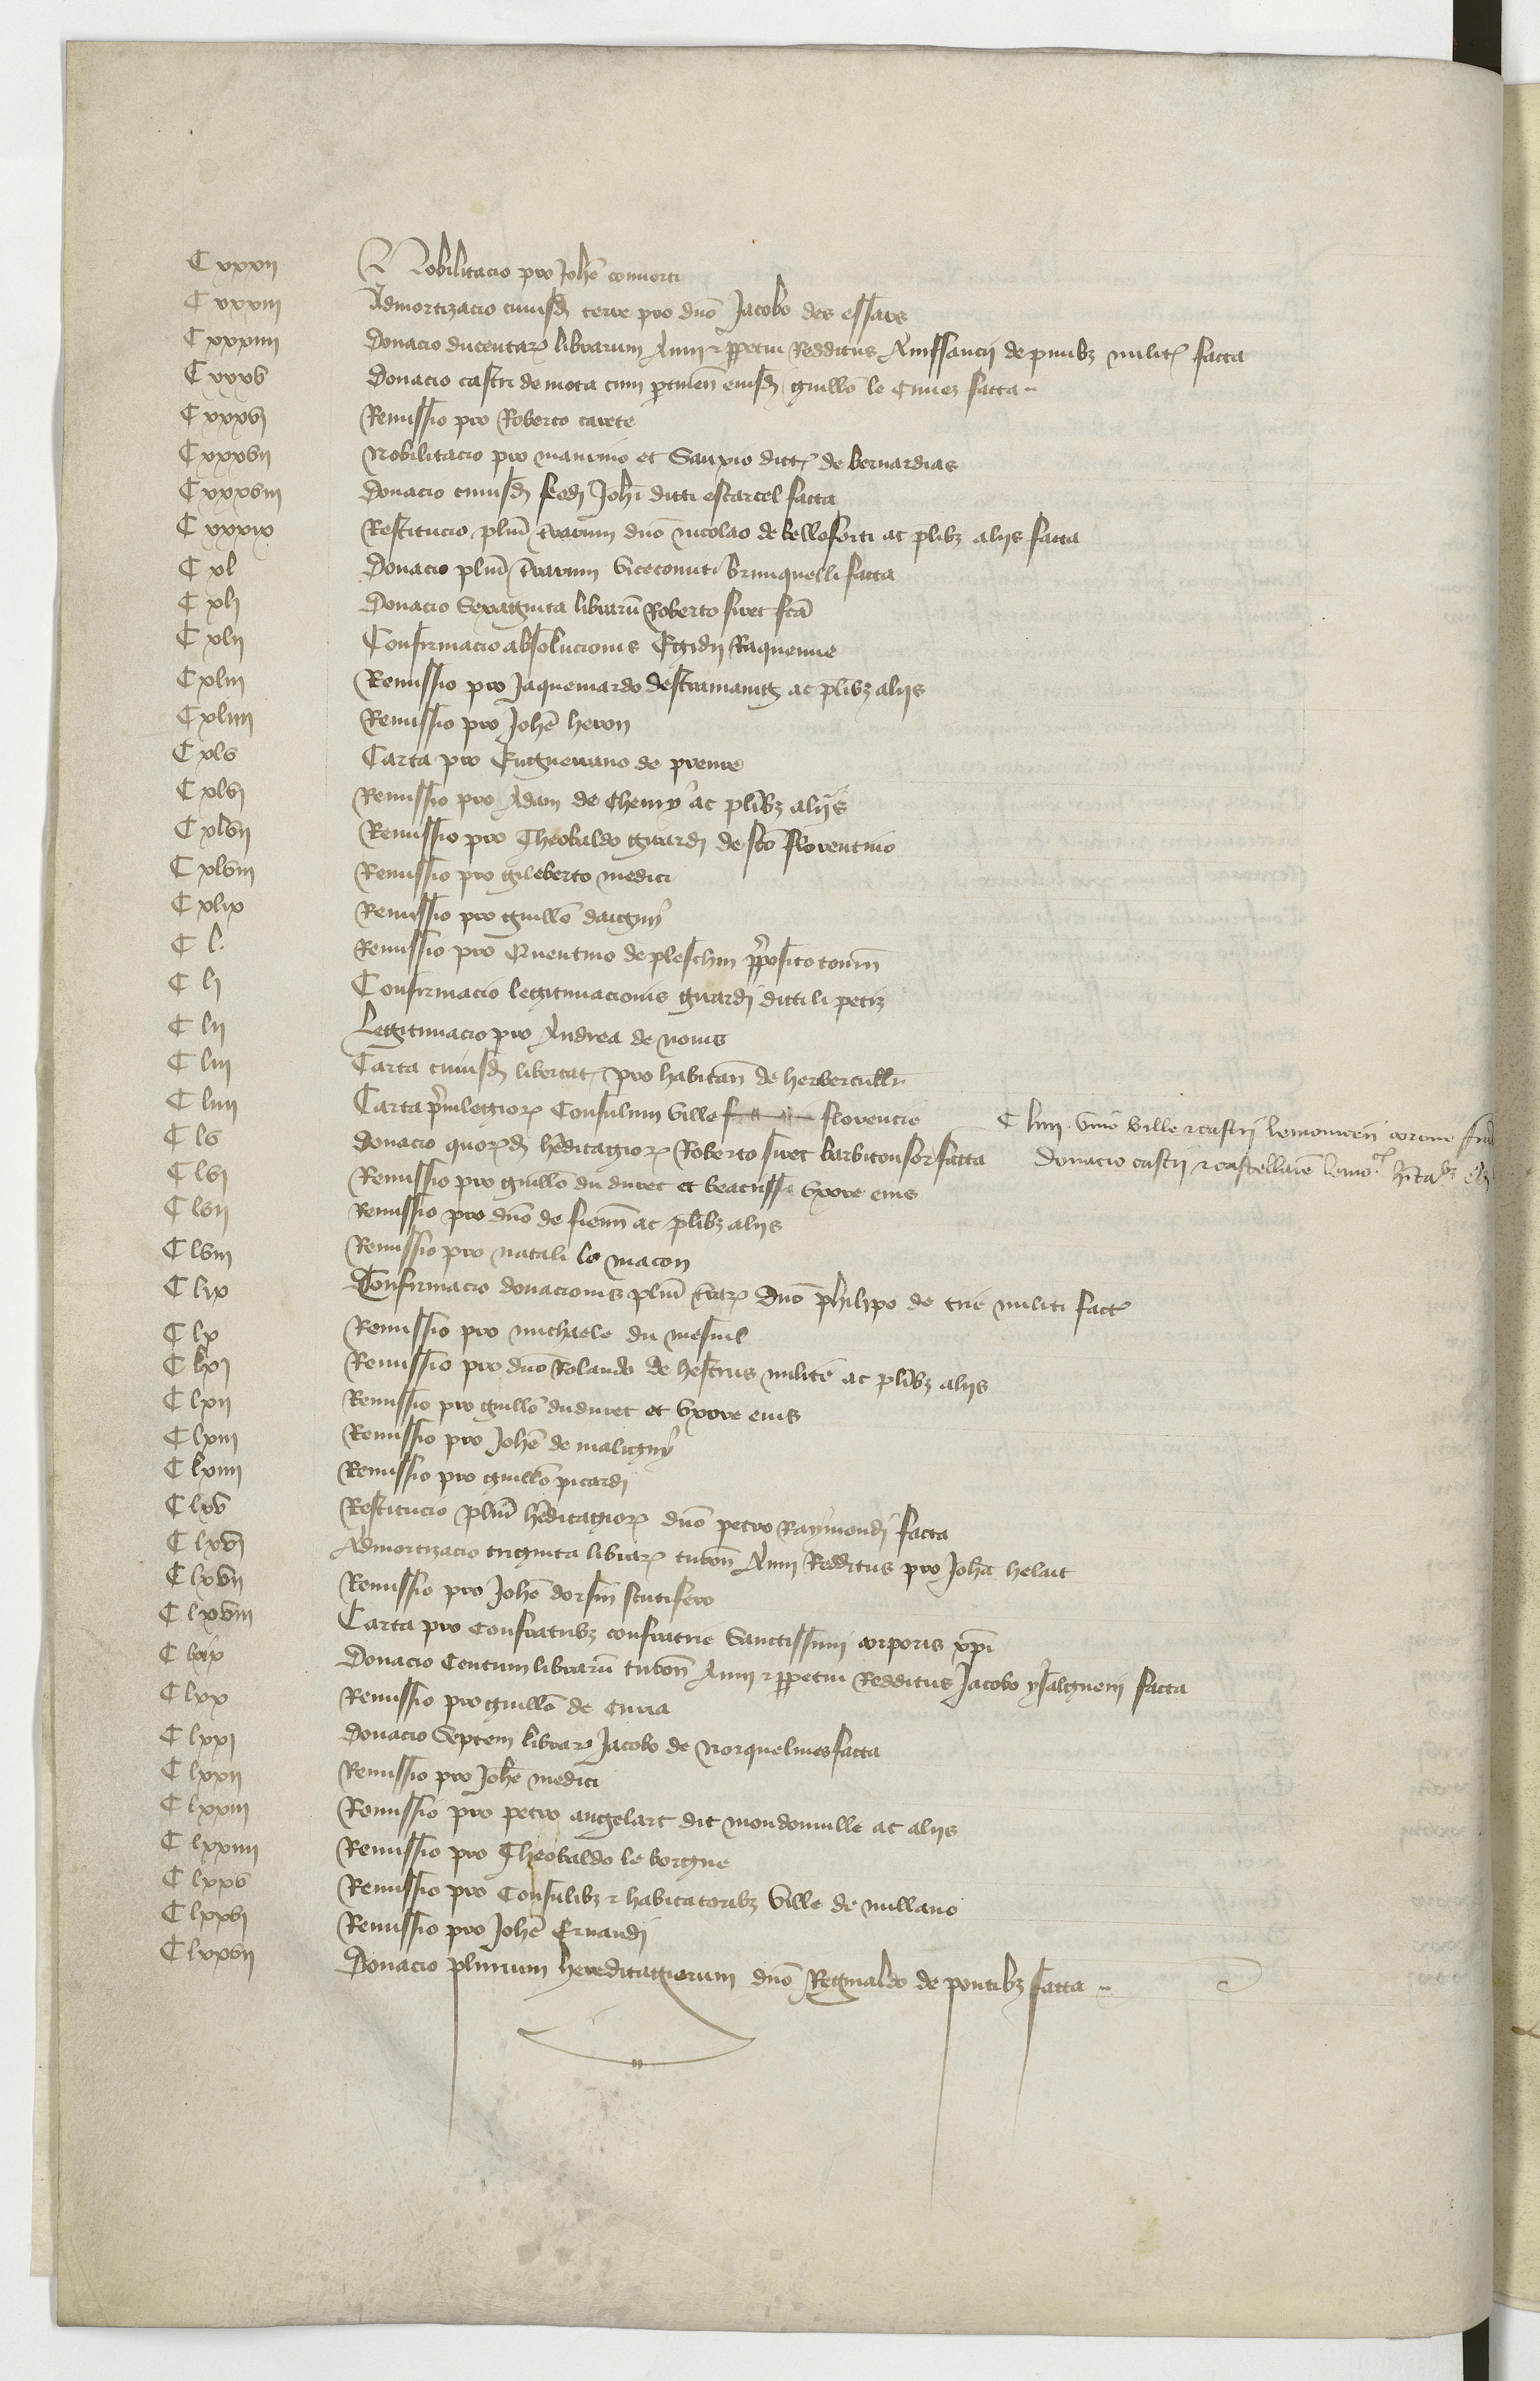 C xxxii Nobilitacio pro Johē conuerti
C xxxiii Admortizacio cuiusdᷓ terre pro dn̄o Jacobo des essars
C xxxiiii Donacio ducentarꝫ librarum Annui ⁊ ꝑpetui Redditus Anissancii de pinibꝫ militi facta
C xxxv Donacio castri de mota cum ꝑtinen̄ eiusdᷓ guillō le facta
C xxxvj Remissio pro Roberto carete
C xxxvii Nobilitacio pro maurino et Sanxio dictꝭ de bernardias
C xxxviii Donacio cuiusdᷓ feodj Joh̄i dicti escarcel facta
C xxxix Restitucio pluriū terrarum dn̄o nicolao de belloforti ac pl̄ibꝫ aliis facta
C xl Donacio pluriū terrarum vicecomiti brunquelli facta
C xlj Donacio Sexaginta librarū Roberto siret fcā
C xlii Confirmacio absolucionis Egidii Raquenne
C xliii Remissio pro Jaquemardo destramanitg ac pl̄ibꝫ aliis
C xliiii Remissio pro Johē heron
C xlv Carta pro Enguerrano de preure
C xlvj Remissio pro Adam de Chemy ac pl̄ibꝫ aliis
C xlvii Remissio pro Theobaldo girardj de sc̄o florentino
C xlviii Remissio pro gileberto medici
C xlix Remissio pro guillō daigny
C l. Remissio pro Quentino de pleschin p̄posito tourn̄
C lj Confirmacio legitimacionis girardi dicti li petiz
C lii Legitimacio pro Andrea de nouis
C liii Carta cuiusdᷓ libertatꝭ pro habitan̄ de herbercullr̄
C liiii Carta p̄uilegiorꝫ Consulum ville florencie C liiii. vnio ville ⁊ castri lemouicen̄ corone
C lv Donacio quorꝫdᷓ hēditagiorꝫ Roberto siret barbitonsor facta Donacio castri ⁊ castellanie lemo
C lvj Remissio pro guillō du duret et beatrissi vxore eius
C lvii Remissio pro dn̄o de fienn̄ ac pl̄ibꝫ aliis
C lviii Remissio pro natali le macon
C lix Confirmacio donacionis pluriū terrarꝫ dn̄o philipo de trie militi factꝭ
C lx Remissio pro michaele du mesnil
C lxj Remissio pro dn̄o Rolando de hestrus milite ac pl̄ibꝫ aliis
C lxii Remissio pro guillō duduret et vxore eius
C lxiii Remissio pro Johē de maligny
C lxiiii Remissio pro guillō picardi
C lxv Restitucio pluriū hēditagiorꝫ dn̄o petro Raymondi facta
C lxvj Admortizacio triginta librarꝫ turon̄ Annui Redditus pro Joh̄a helait
C lxvii Remissio pro Johē dorsin scutifero
C lxviii Carta pro Confratribꝫ confratrie Sanctissimi corporis xp̄i
C lxix Donacio Centum librarū turon̄ Annui ⁊ ꝑpetui Redditus Jacobo ysalguerii facta
C lxx Remissio pro guillō de Curia
C lxxj Donacio Septem librarꝫ Jacobo de Norquelmes facta
C lxxii Remissio pro Johē medici
C lxxiii Remissio pro petro angelart dit mondonuille ac aliis
C lxxiiii Remissio pro Theobaldo le borgne
C lxxv Remissio pro Consulibꝫ ⁊ habitatoribꝫ ville de millano
C lxxvj Remissio pro Johē Ernaudi
C lxxvii Donacio plurium hereditagiorum dn̄o Reginaldo de pontibꝫ facta